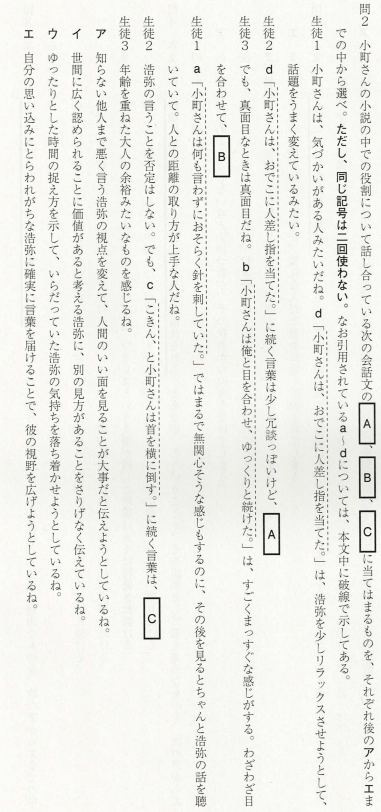 問2 小町さんの小説の中での役割について話し合っている次の会話文の A 、 B 、 C に当てはまるものを、それぞれ後のアからエま
での中から選べ。ただし、同じ記号は二回使わない。なお引用されているa~dについては、本文中に破線で示してある。
生徒1 小町さんは、気づかいがある人みたいだね。d「小町さんは、おでこに人差し指を当てた。」は、浩弥を少しリラックスさせようとして、
話題をうまく変えているみたい。
生徒2 d「小町さんは、おでこに人差し指を当てた。」に続く言葉は少し冗談っぽいけど、 A
生徒3 でも、真面目なときは真面目だね。 b「小町さんは俺と目を合わせ、ゆっくりと続けた。」は、すごくまっすぐな感じがする。わざわざ目
を合わせて、 B
生徒1 a「小町さんは何も言わずにおそらく針を刺していた。」ではまるで無関心そうな感じもするのに、その後を見るとちゃんと浩弥の話を聴
いていて。人との距離の取り方が上手な人だね。
生徒2 浩弥の言うことを否定はしない。でも、c「こきん、と小町さんは首を横に倒す。」に続く言葉は、 C
生徒3 年齢を重ねた大人の余裕みたいなものを感じるね。
ア 知らない他人まで悪く言う浩弥の視点を変えて、人間のいい面を見ることが大事だと伝えようとしているね。
イ 世間に広く認められることに価値があると考える浩弥に、別の見方があることをさりげなく伝えているね。
ウ ゆったりとした時間の捉え方を示して、いらだっていた浩弥の気持ちを落ち着かせようとしているね。
エ 自分の思い込みにとらわれがちな浩弥に確実に言葉を届けることで、彼の視野を広げようとしているね。